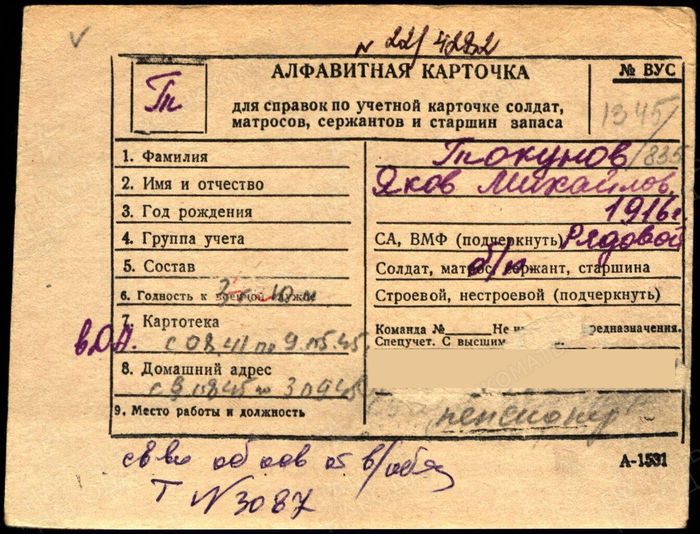 N 22/4282
Тк
АЛФАВИТНАЯ КАРТОЧКА
для справок по учетной карточке солдат,
матросов, сержантов и старшин запаса
№ ВУС
1345/835
1. Фамилия
2. Имя и отчество
3. Год рождения
4. Группа учета
5. Состав
6. Годность к военной службе
7. Картотека
в.О.В. с 08.41 по 9.05.45.
8. Домашний адрес
с 9.08.45 по 3.09.45
9. Место работы и должность
Токунов
Яков Михайлов.
1916г
СА, ВМФ (подчеркнуть) Рядовой
Солдат, матрос, сержант, старшина
Строевой, нестроевой (подчеркнуть)
Команда № Не предназначения.
Спецучет. С высшим
пенсионер
св-во об осв от в/обяз
Т N 3087
А-1531